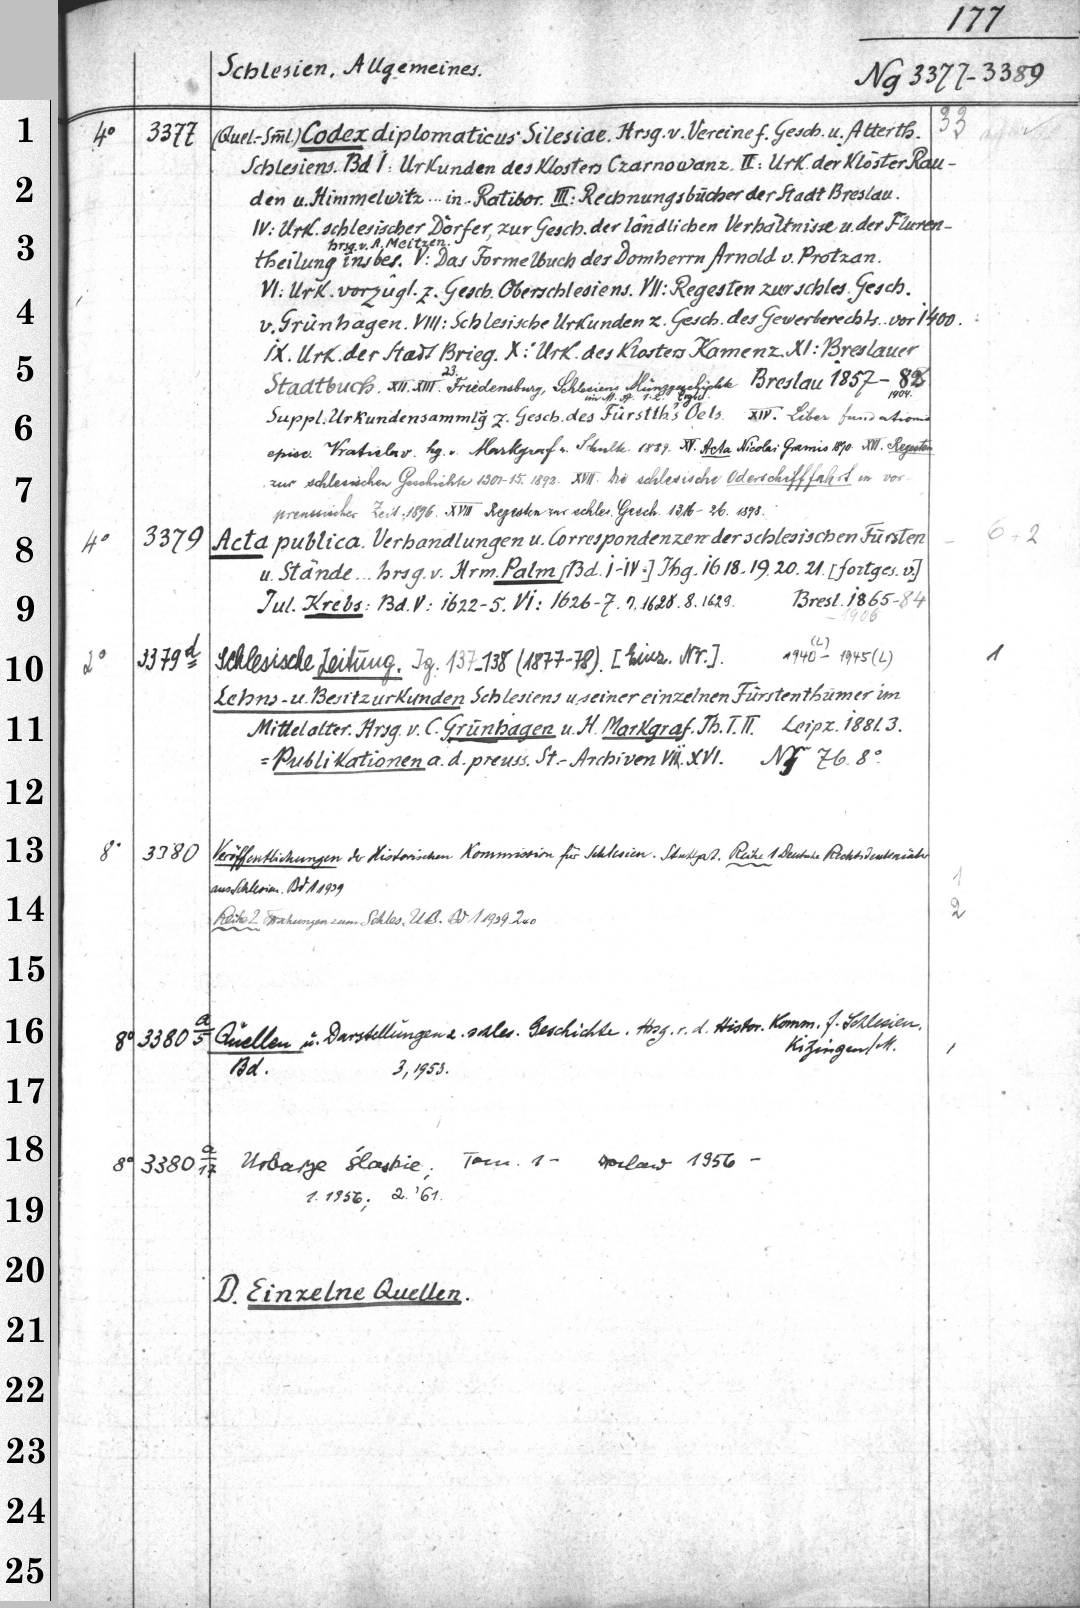 177
Schlesien, Allgemeines.
Ng 3377-3389
1
4° 3377 (Quel.-Sml) Codex diplomaticus Silesiae. Hrsg. v. Vereine f. Gesch. u. Alterth. 33
Schlesiens. Bd I: Urkunden des Klosters Czarnowanz. II: Urk. der Klöster Rau-
2
den u. Himmelwitz ... in Ratibor. III: Rechnungsbücher der Stadt Breslau.
IV: Urk. schlesischer Dörfer, zur Gesch. der ländlichen Verhältnisse u. der Fluren-
hrsg. v. A. Meitzen.
3
theilung insbes. V: Das Formelbuch des Domherrn Arnold v. Protzan.
VI: Urk. vorzügl. z. Gesch. Oberschlesiens. VII: Regesten zur schles. Gesch.
4
v. Grünhagen. VIII: Schlesische Urkunden z. Gesch. des Gewerberechts vor 1400.
IX. Urk. der Stadt Brieg. X: Urk. des Klosters Kamenz. XI: Breslauer
5
23.
Stadtbuch. XII. XIII. Friedensburg, Schlesiens Münzgeschichte Breslau 1857-82
im M. A. 1904.
6
Suppl. Urkundensammlg z. Gesch. des Fürstth's Oels. XIV. Liber fundationis
episc. Vratislav. hg. v. Markgraf u. Schulte 1889. XV. Acta Nicolai Gramis 1890. XVI. Regesten
7
zur schlesischen Geschichte 1301-15. 1892. XVII. Die schlesische Oderschifffahrt in vor-
preussischer Zeit. 1896. XVIII Regesten zur schles. Gesch. 1316-26. 1898.
8
4° 3379 Acta publica. Verhandlungen u. Correspondenzen der schlesischen Fürsten 6 + 2
u. Stände ... hrsg. v. Hrm. Palm [Bd. I-IV.] Jhg. 1618. 19. 20. 21. [fortges. v.]
9
Jul. Krebs: Bd. V: 1622-5. VI: 1626-7. 7. 1628. 8. 1629. Bresl. 1865-84
- 1906
10
2° 3379 d Schlesische Zeitung. Jg. 137-138 (1877-78). [Einz. Nr.]. 1940 (L) - 1945 (L) 1
Lehns- u. Besitzurkunden Schlesiens u. seiner einzelnen Fürstenthümer im
11
Mittelalter. Hrsg. v. C. Grünhagen u. H. Markgraf. Th. I. II. Leipz. 1881. 3.
= Publikationen a. d. preuss. St.-Archiven VII. XVI. Ng 76. 8°
12
13
8° 3380 Veröffentlichungen der Historischen Kommission für Schlesien. Stuttgart. Reihe 1 Deutsche Rechtsdenkmäler
aus Schlesien. Bd 1 1939 1
14
Reihe 2 zum Schles. UB. Bd 1 1939 2
15
16
8° 3380 a/5 Quellen u. Darstellungen z. schles. Geschichte. Hrsg. v. d. Histor. Komm. f. Schlesien.
Kitzingen/M. 1
Bd. 3, 1953.
17
18
8° 3380 a/17 Urbarze śląskie. Tom. 1 - Wrocław 1956 -
19
1. 1956; 2. '61.
20
D. Einzelne Quellen.
21
22
23
24
25